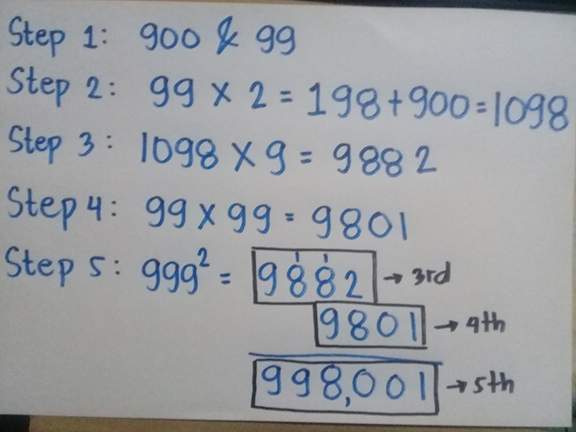 Step 1: 900 & 99
Step 2: 99 x 2 = 198+900=1098
Step 3: 1098 x 9 = 9882
Step 4: 99 x 99 = 9801
Step 5: 999² = 9882 → 3rd
9801 → 4th
998,001 → 5th